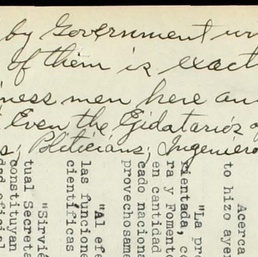 by Government
of them is exact
iness men here an
Even the Gidatario's
s; Politicians; Ingeniero
Acerca
to hizo ayer
"La pro
ientada co
ra y Fomento
en cantidad
cado naciona
provechosame
"Al efe
las funciona
científicas
"Sirvié
tual Secreta
constituyan